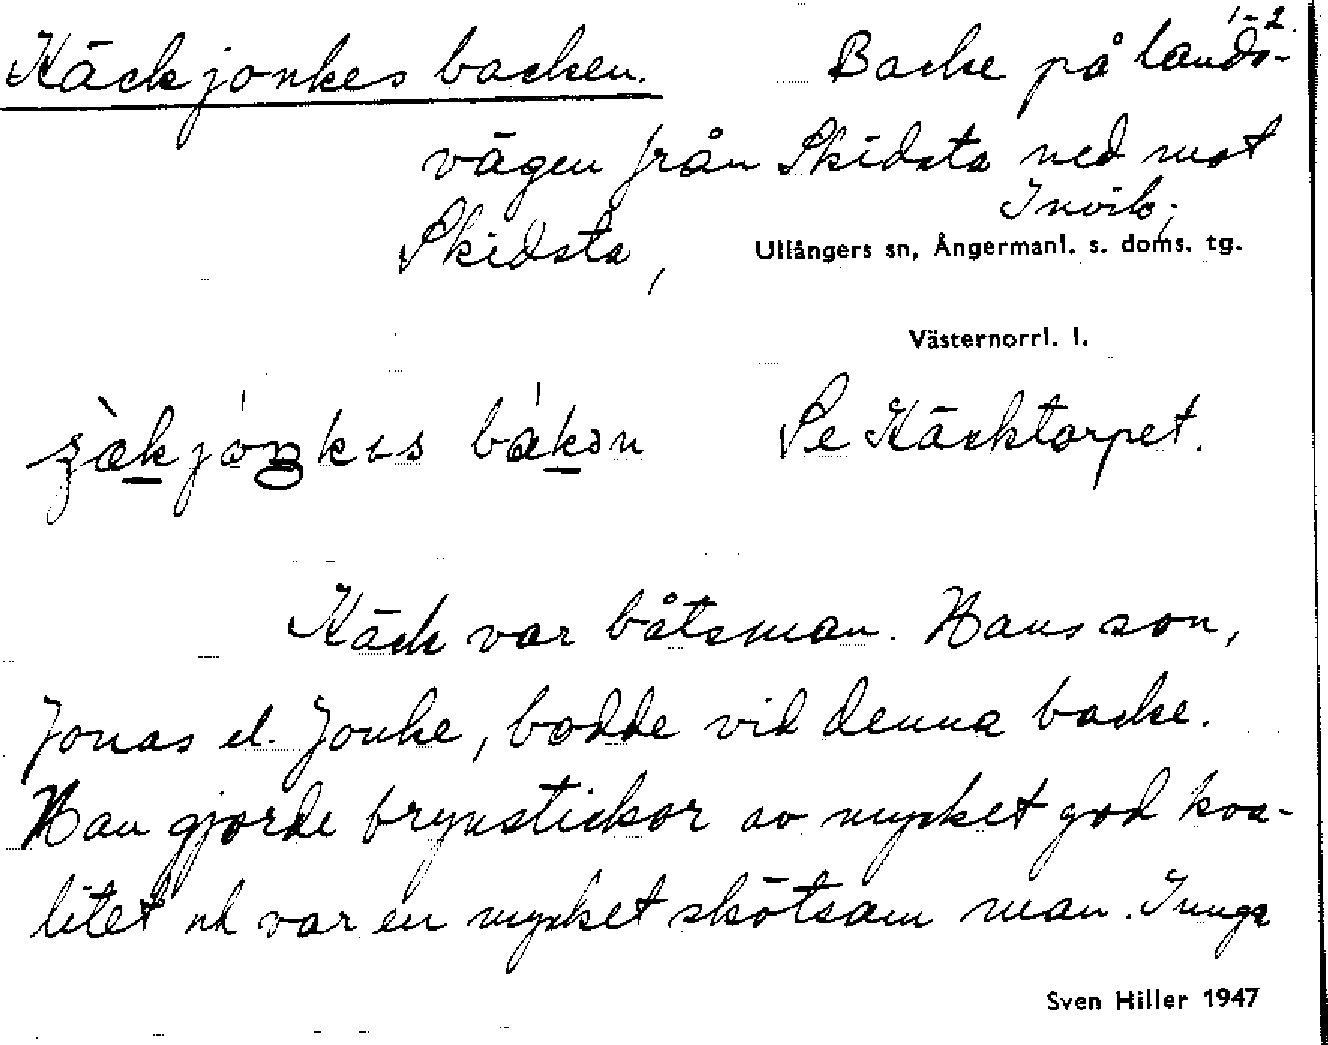 1-2.
Käckjonkes backen. Backe på lands-
vägen från Skidsta ned mot
Invik;
Skidsta, Ullångers sn, Ångermanl. s. doms. tg.
Västernorrl. l.
Se Käcktorpet.
Käck var båtsman. Hans son,
Jonas el. Jonke, bodde vid denna backe.
Han gjorde brynstickor av mycket god kva-
litet och var en mycket skötsam man. Inuga
Sven Hiller 1947